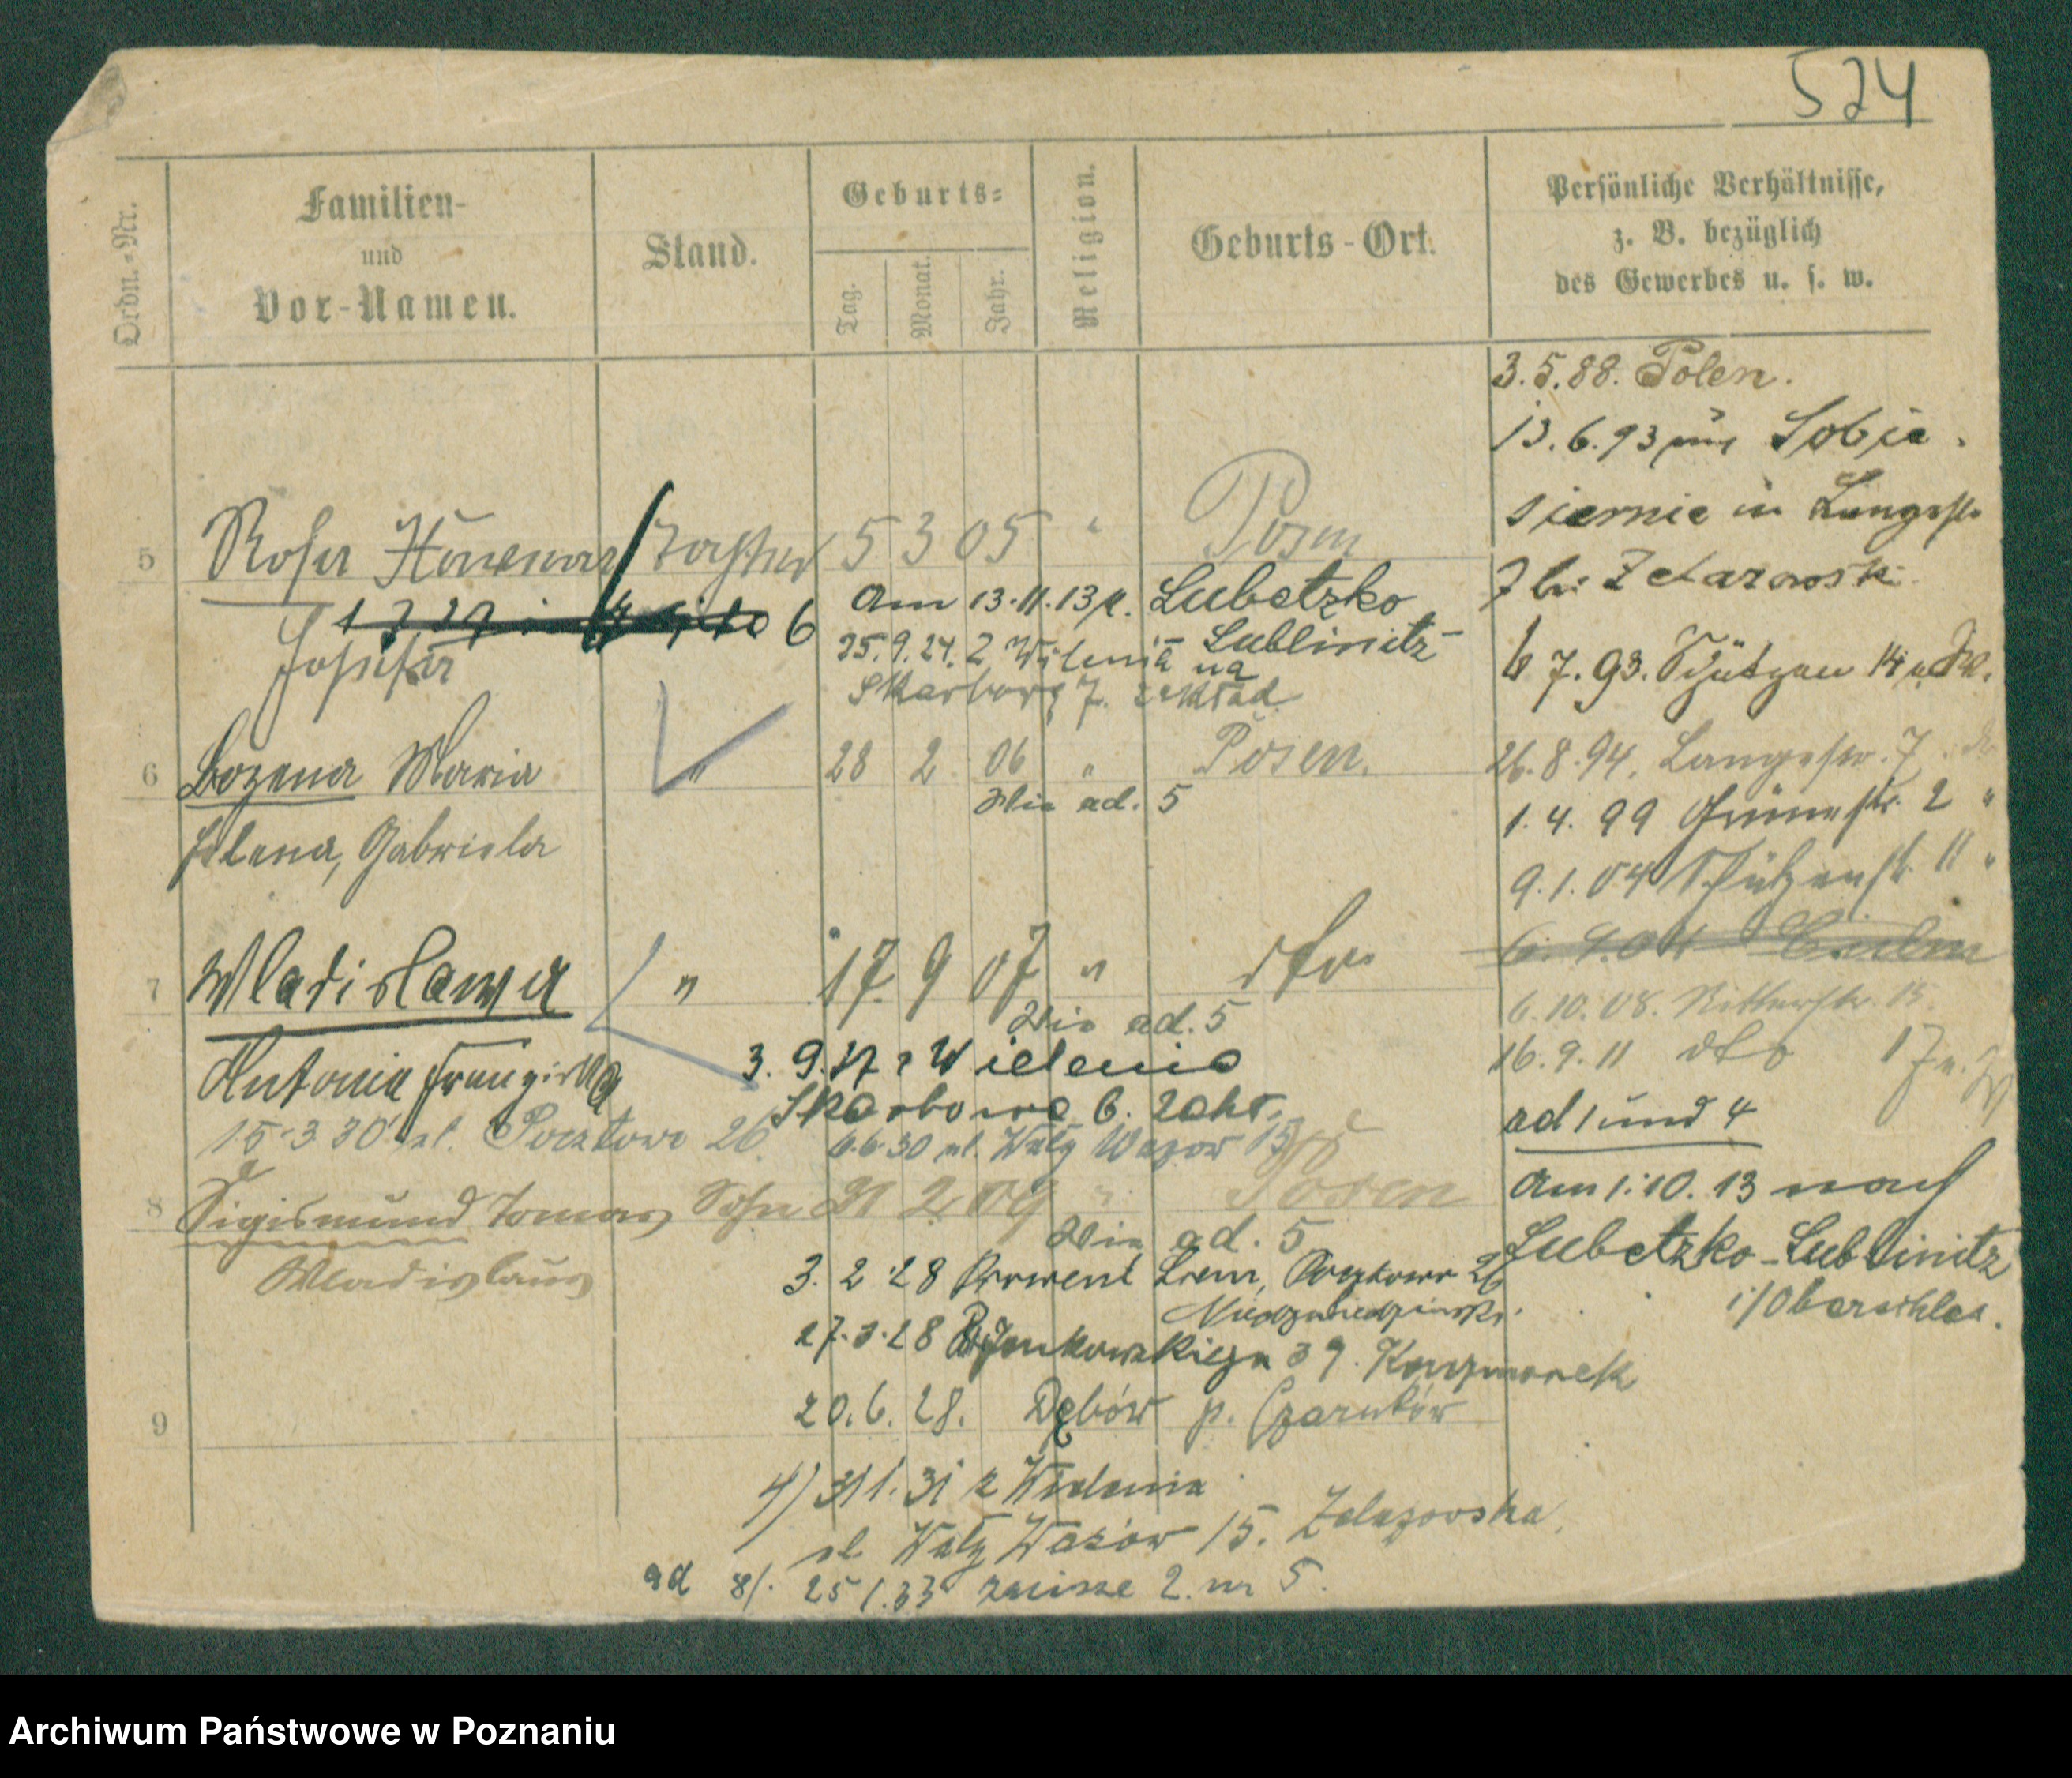 524
Ordn.-Nr.
Familien-
und
Vor-Namen.
Stand.
Geburts-
Tag.
Monat.
Jahr.
Religion.
Geburts-Ort.
Persönliche Verhältnisse,
z. B. bezüglich
des Gewerbes u. s. w.
3.5.88. Polen.
13.6.93 Sobie
siernie in Langestr.
7 bei Zelazowsk
6 7. 93. Schützen 14 u. W.
26.8.94. Langestr. 7
1. 4. 99 Grünestr. 2 "
9.1.04 Schützenstr. 11 "
6.10.08. Ritterstr. 15.
16.9.11 dto 17
ad 1 und 4
Am 1.10.13 nach
Lubetzko-Lublinitz
i/Oberschles.
5 Rosa Tochter 5 3 05 " Posen
6
Josefa
Am 13.11.13 n. Lubetzko
Lublinitz
25.9.24. z Wielenia na
Skarbowa 7.
6 Bozena Maria " 28 2 06 " Posen.
Wie ad. 5
Helena, Gabriela
7 Wladislawa " 17. 9 07 " dto.
Wie ad. 5
Antonia Franziska
3. 9. 27 z Wielenia
Skarbowa 6.
15.3 30 ul. Pocztowa 26. 6.6.30 ul. Wały Wazów 15
8 Sigismund Tomas Sohn 21 2 09 " Posen
Wie ad. 5
Wladislaus
3. 2 28 Prowent Śrem, Pocztowa 26
Niedzwiedzinski.
27.3.28 Kaczmarek
20.6.28. Dębów p. Czarnków
9
4) 31 1. 31 z Wielenia
ul Wały Wazów 15. Zelazowska
ad 8/. 25 1.33 zacisze 2. m 5.
Archiwum Państwowe w Poznaniu